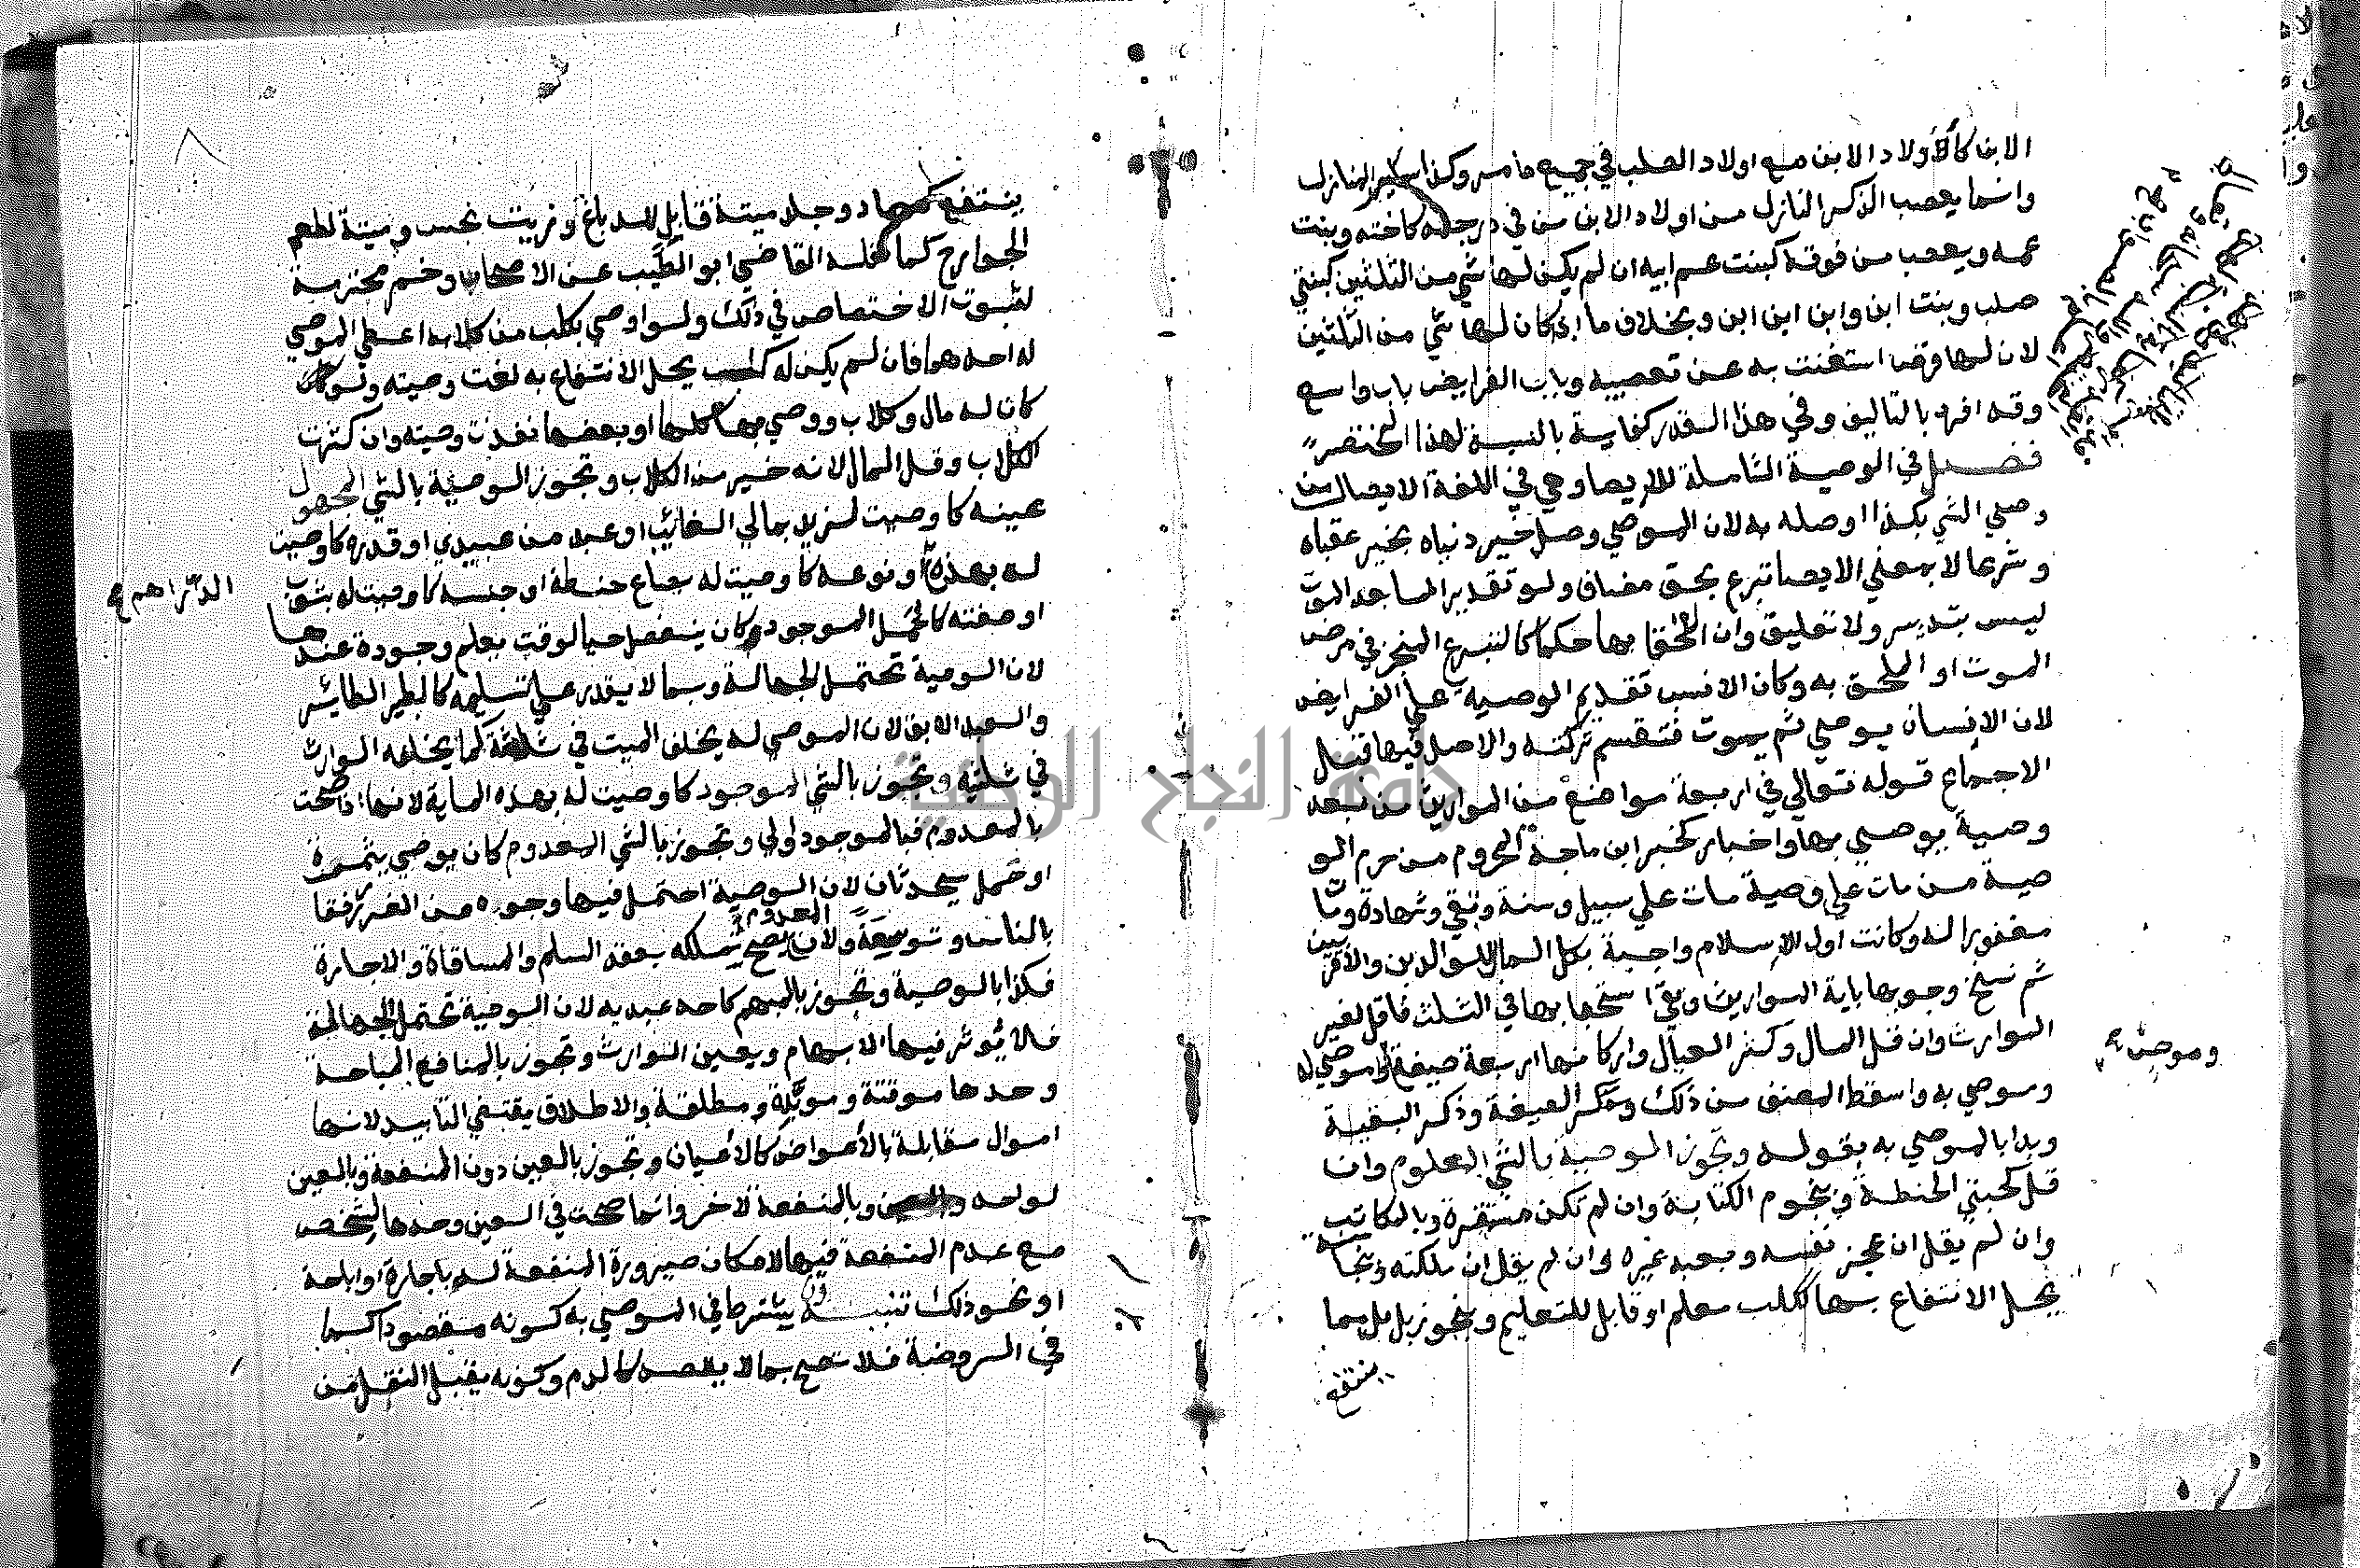 الابن كأولاد الابن مع اولاد الصلب في جميع ما مر وكذا ساير المنازل
وانما يعصب الذكر النازل من اولاد الابن من في درجته كاخته وبنت
عمه ويعصب من فوقه كبنت عم ابيه ان لم يكن لها شي من الثلثين كبنتي
صلب وبنت ابن وابن ابن ابن وبخلاف ما اذا كان لها شي من الثلثين
لان لها فرضا استغنت به عن تعصيبه وباب الفرايض باب واسع
وقد افرد بالتاليف وفي هذا القدر كفاية بالنسبة لهذا المختصر
فصل في الوصية الشاملة للايصا وهي في اللغة الايصال من
وصي الشي بكذا اوصله به لان الموصي وصل خير دنياه بخير عقباه
وشرعا لا بمعني الايصا تبرع بحق مضاف ولو تقديرا لما بعد الموت
ليس بتدبير ولا تعليق وان التحقا بها حكما كالتبرع المنجز في مرض
الموت او الملحق به وكان الانسب تقديم الوصية علي الفرايض
لان الانسان يوصي ثم يموت فتقسم تركته والاصل فيها قبل
الاجماع قوله تعالي في اربعة مواضع من المواريث من بعد
وصية يوصي بها واخبار كخبر ابن ماجة المحروم من حرم الو
صية من مات علي وصية مات علي سبيل وسنة وتقي وشهادة ومات
مغفورا له وكانت اول الاسلام واجبة بكل المال للوالدين والاقربين
ثم نسخ وجوبها باية المواريث وبقي استحبابها في الثلث فاقل لغير
الوارث وان قل المال وكثر العيال واركانها اربعة صيغة وموصي له
وموصي به واسقط المصنف من ذلك وذكر الصيغة وذكر البقية
وموص
وبدا بالموصي به بقوله وتجوز الوصية بالشي المعلوم وان
قل كحبتي الحنطة وبنجوم الكتابة وان لم تكن مستقرة وبالمكاتب
وان لم يقل ان عجز نفسه وبعبد غيره وان لم يقل ان ملكته وبنجاسة
يحل الانتفاع بها ككلب معلم او قابل للتعليم وبنحو زبل مما
ينتفع
ينتفع كسماد وجلد ميتة قابل للدباغ وزيت نجس وميتة لطعم
الجوارح كما نقله القاضي ابو الطيب عن الاصحاب وخمر محترمة
لثبوت الاختصاص في ذلك ولو اوصي بكلب من كلابه اعطي الموصي
له احدها فان لم يكن له كلب يحل الانتفاع به لغت وصيته ولو كان
كان له مال وكلاب ووصي بها كلها او بعضها نفذت وصيته وان كثرت
الكلاب وقل المال لانه خير من الكلاب وتجوز الوصية بالشي المجهول
عينه كاوصيت لزيد بمالي الغائب او عبد من عبيدي او قدره كاوصيت
له بهذه او نوعه كاوصيت له بصاع حنطة او جنسه كاوصيت له بثوب
الدراهم
او صفته كالحمل الموجود وكان ينفصل حيا لوقت يعلم وجوده عندها
لان الوصية تحتمل الجهالة وبما لا يقدر علي تسليمه كالطير الطاير
والعبد الابق لان الموصي له يخلف الميت في ثلثه كما يخلفه الوارث
في ثلثيه وتجوز بالشي الموجود كاوصيت له بهذه الماية لانها اذا صحت
بالمعدوم فبالموجود اولي وتجوز بالشي المعدوم كان يوصي بثمرة
او حمل سيحدثان لان الوصية احتمل فيها وجوه من الغرر رفقا
بالناس وتوسعة ولان المعدوم يصح تملكه بعقد السلم والمساقاة والاجارة
فكذا بالوصية وتجوز بالمبهم كاحد عبديه لان الوصية تحتمل الجهالة
فلا يوثر فيها الابهام ويعين الوارث وتجوز بالمنافع المباحة
وحدها موقتة وموبدة ومطلقة والاطلاق يقتضي التابيد لانها
اموال مقابلة بالأعواض كالأعيان وتجوز بالعين دون المنفعة وبالعين
لواحد وبالمنفعة لاخر وانما صحت في العين وحدها لشخص
مع عدم المنفعة فيها لامكان صيرورة المنفعة له باجارة او اباحة
او نحو ذلك تنبيه يشترط في الموصي به كونه مقصودا كما
في الروضة فلا تصح بما لا يقصد كالدم وكونه يقبل النقل من
جامعة النجاح الوطنية